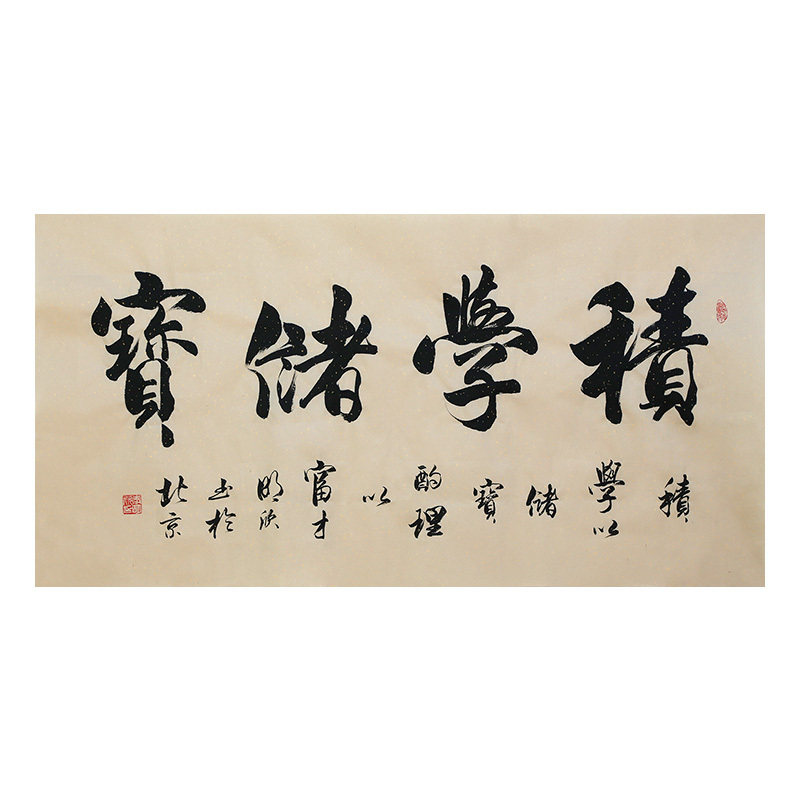 積學儲寶
積
學以
儲
寶
酌理
以
富才
明欣
书於
北京